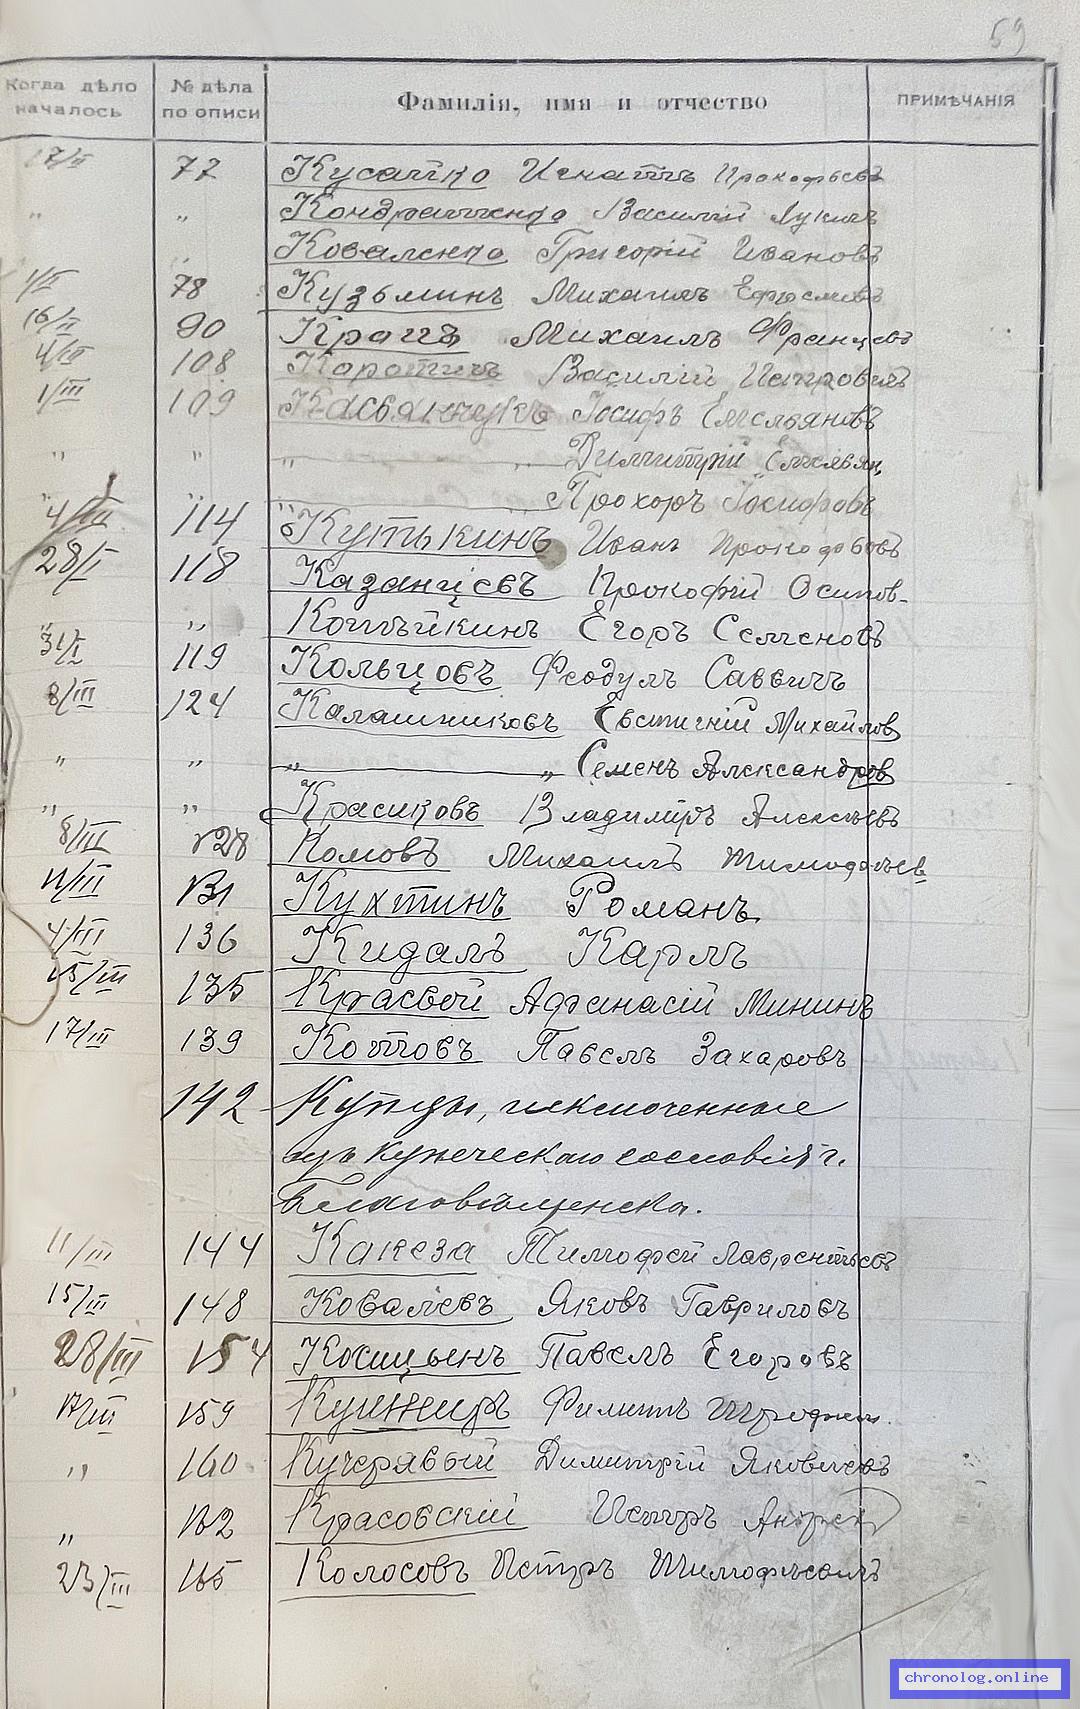 59
Когда дѣло началось № дѣла по описи Фамилія, имя и отчество ПРИМѢЧАНІЯ
17/II 77 Кусайко Игнатъ Прокофьевъ
" " Кондратенко Василій Лукичъ
Коваленко Григорій Ивановъ
1/II 78 Кузьминъ Михаилъ
16/II 90 Михаилъ Францевъ
4/III 108 Коротичъ Василій Петровичъ
1/III 109 Касьянчукъ Іосифъ Емельяновъ
" " " " Димитрій Емельян
" " " Прохоръ Іосифовъ
4/III 114 Кутькинъ Иванъ Прокофьевъ
28/I 118 Казанцевъ Прокофій Осипов-
" " Копѣйкинъ Егоръ Семеновъ
31/I 119 Кольцовъ Феодулъ Саввичъ
8/III 124 Калашниковъ Евстигній Михайлов
" " " " Семенъ Александров
" " Красиковъ Владиміръ Алексѣевъ
8/III 128 Комовъ Михаилъ Тимофѣев
11/III 131 Кухтинъ Романъ
4/III 136 Кидалъ Карлъ
15/III 135 Красвой Афанасій Мининъ
17/III 139 Котовъ Павелъ Захаровъ
142 Купцы, исключенные
изъ купеческаго сословія г.
Благовѣщенска.
11/III 144 Какеза Тимофей Лаврентьевъ
15/III 148 Ковалевъ Яковъ Гавриловъ
28/III 154 Косицынъ Павелъ Егоровъ
17/III 159 Филиппъ
" 160 Кучерявый Димитрій Яковлевъ
" 162 Красовскій Петръ Андрей
23/III 165 Колосовъ Петръ Тимофѣевичъ
chronolog.online